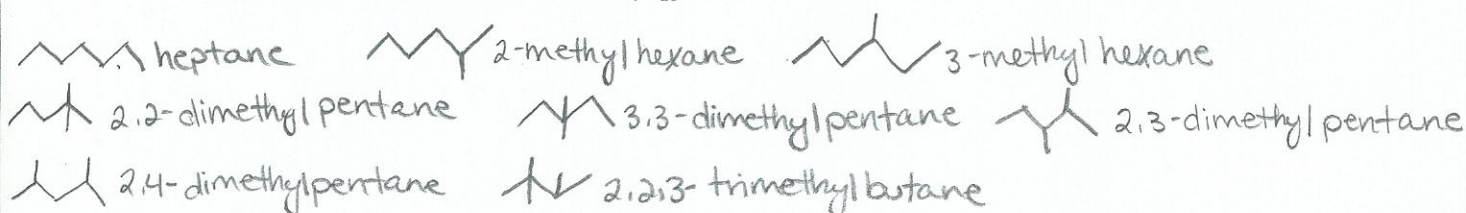 heptane 2-methylhexane 3-methylhexane
2,2-dimethylpentane 3,3-dimethylpentane 2,3-dimethylpentane
2,4-dimethylpentane 2,2,3-trimethylbutane